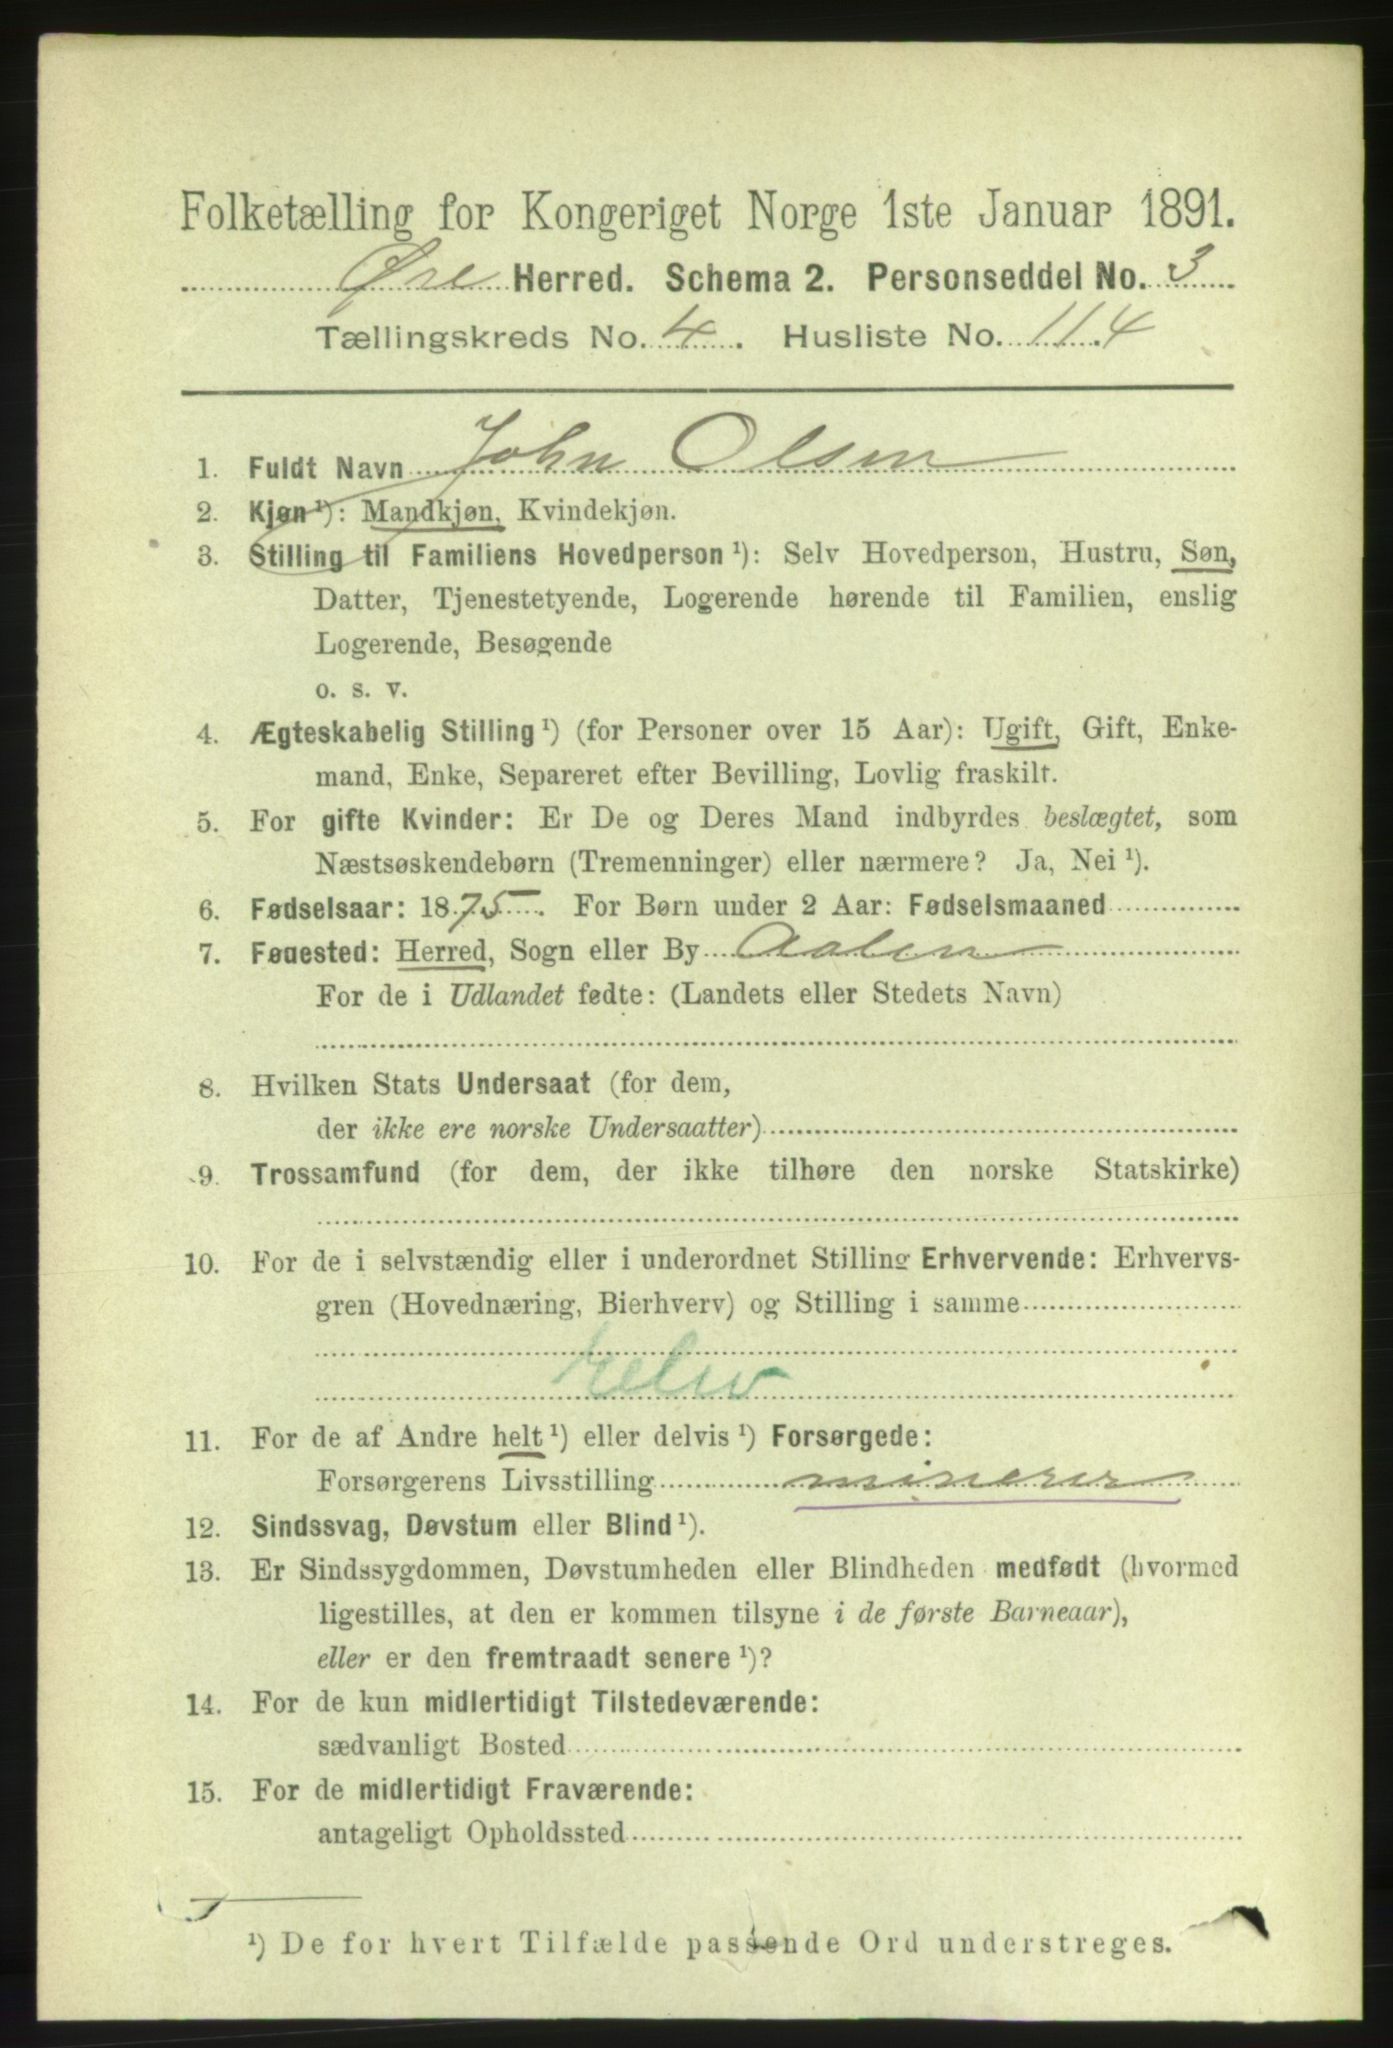 Folketælling for Kongeriget Norge 1ste Januar 1891.
Øre Herred. Schema 2. Personseddel No. 3
Tællingskreds No. 4. Husliste No. 114
1. Fuldt Navn John Olsen
2. Kjøn ¹): Mandkjøn, Kvindekjøn.
3. Stilling til Familiens Hovedperson ¹): Selv Hovedperson, Hustru, Søn,
Datter, Tjenestetyende, Logerende hørende til Familien, enslig
Logerende, Besøgende
o. s. v.
4. Ægteskabelig Stilling ¹) (for Personer over 15 Aar): Ugift, Gift, Enke-
mand, Enke, Separeret efter Bevilling, Lovlig fraskilt.
5. For gifte Kvinder: Er De og Deres Mand indbyrdes beslægtet, som
Næstsøskendebørn (Tremenninger) eller nærmere? Ja, Nei ¹).
6. Fødselsaar: 1875. For Børn under 2 Aar: Fødselsmaaned
7. Føuested: Herred, Sogn eller By Aalen
For de i Udlandet fødte: (Landets eller Stedets Navn)
8. Hvilken Stats Undersaat (for dem,
der ikke ere norske Undersaatter)
9. Trossamfund (for dem, der ikke tilhøre den norske Statskirke)
10. For de i selvstændig eller i underordnet Stilling Erhvervende: Erhvervs-
gren (Hovednæring, Bierhverv) og Stilling i samme
11. For de af Andre helt ¹) eller delvis ¹) Forsørgede:
Forsørgerens Livsstilling minerer
12. Sindssvag, Døvstum eller Blind ¹).
13. Er Sindssygdommen, Døvstumheden eller Blindheden medfødt (hvormed
ligestilles, at den er kommen tilsyne i de første Barneaar),
eller er den fremtraadt senere ¹)?
14. For de kun midlertidigt Tilstedeværende:
sædvanligt Bosted
15. For de midlertidigt Fraværende:
antageligt Opholdssted
¹) De for hvert Tilfælde passende Ord understreges.